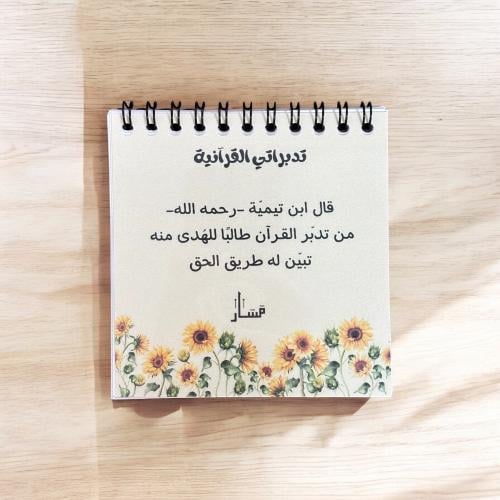 تدبراتي القرآنية
قال ابن تيميّة -رحمه الله-
من تدبّر القرآن طالبًا للهدى منه
تبيّن له طريق الحق
مَسَار